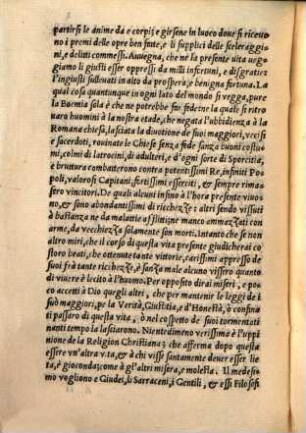 partirsi le anime da e corpi, e girsene in luoco doue si riceuo
no i premi delle opre ben fatte, e li supplici delle sceleraggi
ni, e delitti commessi. Auuegna, che ne la presente uita ueg
giamo li giusti esser oppressi da mille infortuni, e disgratie,
l'ingiusti solleuati in alto da prospera, e benigna fortuna. La
qual cosa quantunque in ogni lato del mondo si uegga, pure
la Boemia sola è che ne potrebbe far fede: ne la quale si ritro
nauano huomini à la nostra etade, che negata l'ubbidienza à la
Romana chiesa, lasciata la diuotione de suoi maggiori, uccisi
e sacerdoti, rouinate le Chiese senza fede senza buoni costu
mi, colmi de latrocini, di adulteri, e d'ogni sorte di Sporcitia,
e bruttura combatterono contra potentissimi Re, infiniti Po
poli, ualorosi Capitani, firmissimi esserciti, & sempre rima
sero uincitori. De quali alcuni infino à l'hora presente uiuo
no, & sono abondantissimi di ricchezze: altri sendo uissuti
à bastanza ne da malatie afflitti, ne manco ammazzati con
arme, da uecchiezza solamente son morti. Intanto che se non
altro miri, che il corso di questa uita presente giudicherai co
storo beati, che ottenute tante uittorie, carissimi appresso de
suoi frà tante ricchezze, è sanza male alcuno uissero quanto
di uiuere è lecito à l'huomo. Per opposito dirai miseri, e po
co accetti à Dio quegli altri, che per mantener le leggi de i
sub maggiori, pe la Verità, Giustitia, e d'Honestà, ò confina
ti passaro di questa uita, ò nel cospetto de suoi tormentati
nanti tempo la lasciarono. Nientedimeno uerissima è l'uppi
nione de la Religion Christiana; che afferma dopo questa
essere un'altra uita, & à chi uisse santamente deuer esser lie
ta, è gioconda; come à gl'altri misera, e molesta. Il medesi
mo uogliono e Giudei, is Sarraceni, i Gentili, & essi Filosofi